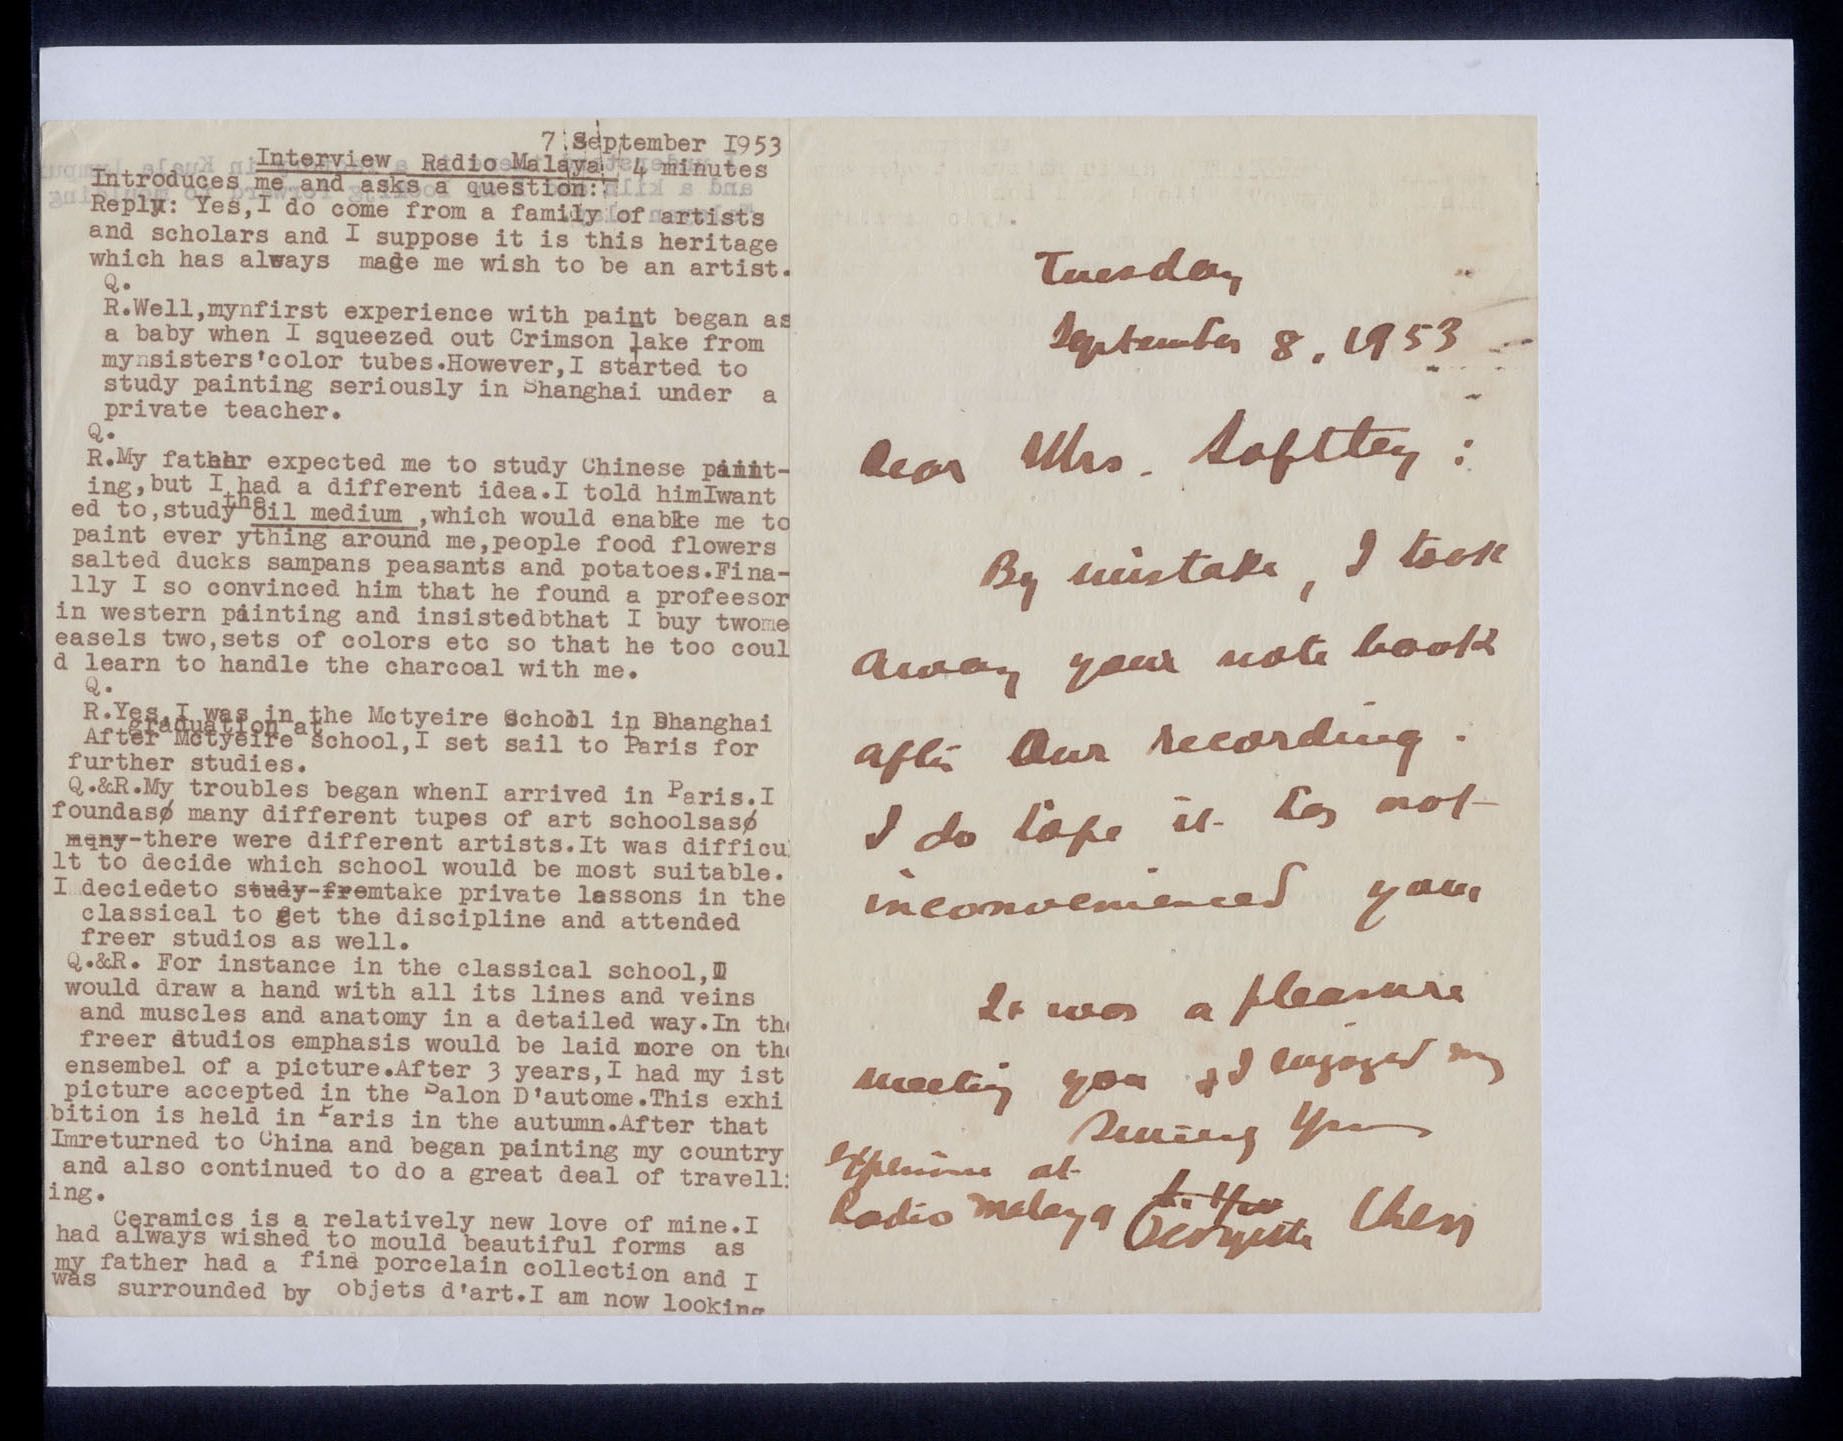 7 September 1953
Interview Radio Malaya 4 minutes
Introduces me and asks a question:
Reply: Yes,I do come from a family of artists
and scholars and I suppose it is this heritage
which has always made me wish to be an artist.
Q.
R.Well,mynfirst experience with paint began as
a baby when I squeezed out Crimson lake from
mynsisters'color tubes.However,I started to
study painting seriously in Shanghai under a
private teacher.
Q.
R.My father expected me to study Chinese paint-
ing,but I had a different idea.I told himIwant
ed to,study the oil medium ,which would enable me to
paint ever ything around me,people food flowers
salted ducks sampans peasants and potatoes.Fina-
lly I so convinced him that he found a profeesor
in western painting and insistedbthat I buy two
easels two,sets of colors etc so that he too coul
d learn to handle the charcoal with me.
Q.
R.Yes,I was in the Mctyeire School in Shanghai
graduation at
After Mctyeire school,I set sail to Paris for
further studies.
Q.&R.My troubles began whenI arrived in Paris.I
foundasø many different tupes of art schoolsasø
many-there were different artists.It was difficu
lt to decide which school would be most suitable.
I deciedeto study-fromtake private lessons in the
classical to get the discipline and attended
freer studios as well.
Q.&R. For instance in the classical school,I
would draw a hand with all its lines and veins
and muscles and anatomy in a detailed way.In the
freer studios emphasis would be laid more on the
ensembel of a picture.After 3 years,I had my ist
picture accepted in the Salon D'autome.This exhi
bition is held in Paris in the autumn.After that
Imreturned to China and began painting my country
and also continued to do a great deal of travell
ing.
Ceramics is a relatively new love of mine.I
had always wished to mould beautiful forms as
my father had a fine porcelain collection and I
was surrounded by objets d'art.I am now looking
Tuesday
September 8, 1953
Dear Mrs. Softley :
By mistake, I took
away your note book
after our recording.
I do hope it has not
inconvenienced you.
It was a pleasure
meeting you & I enjoyed my
experience at
Radio Malaya
Georgette Chen